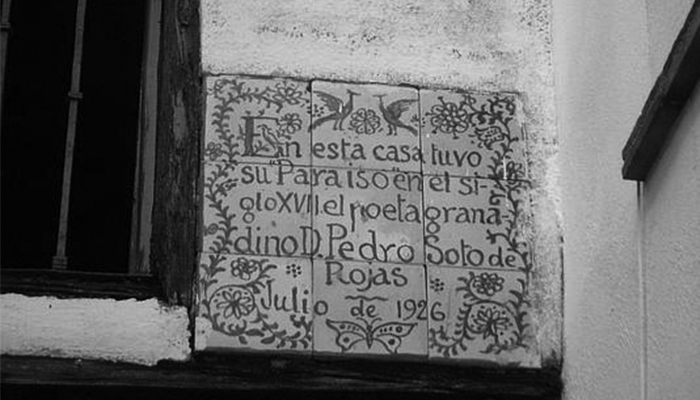 En esta casa tuvo
su "Paraiso" en el si-
glo XVII, el poeta grana-
dino D. Pedro Soto de
Rojas
Julio de 1926